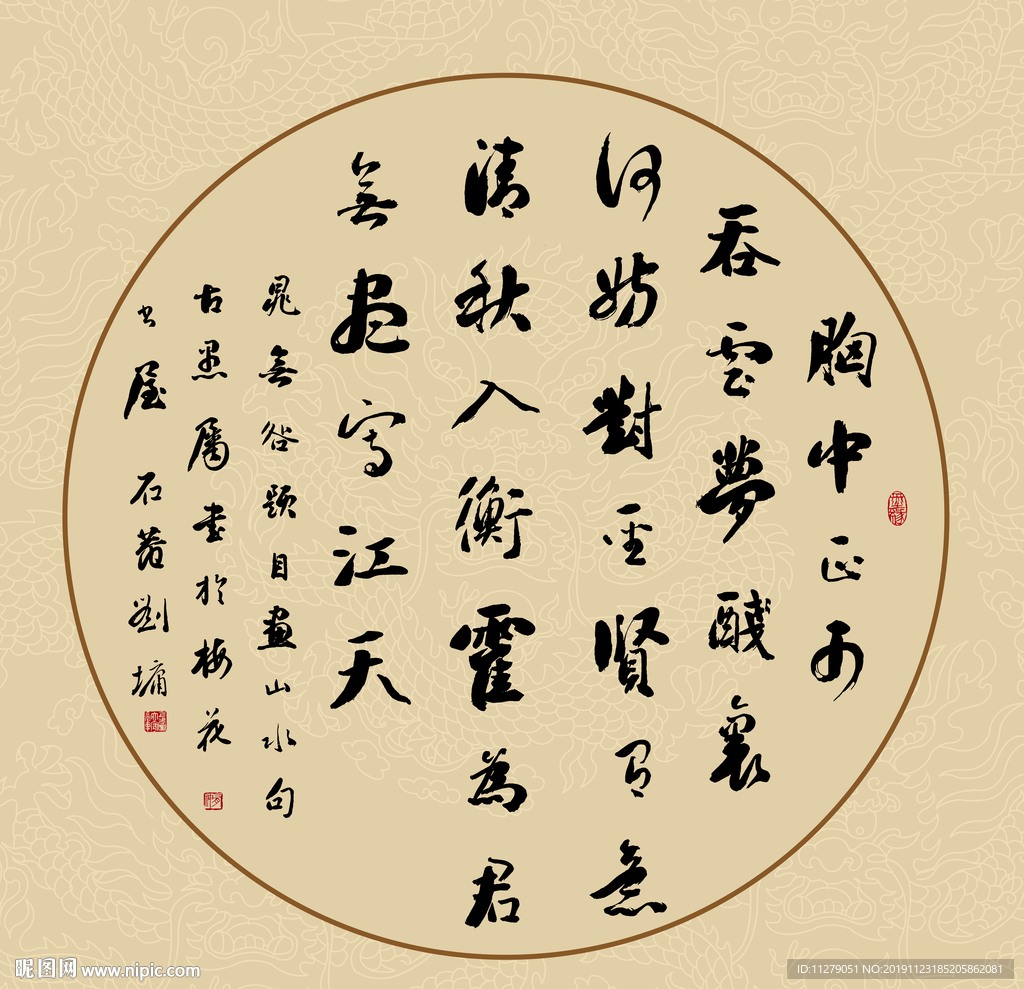 胸中正可
吞雲夢醆裏
何妨對聖賢有意
清秋入衡霍為君
無盡寫江天
晁無咎題自畫山水句
古愚屬書於梅花
書屋 石菴劉墉
昵图网 www.nipic.com
ID:11279051 NO:20191123185205862081